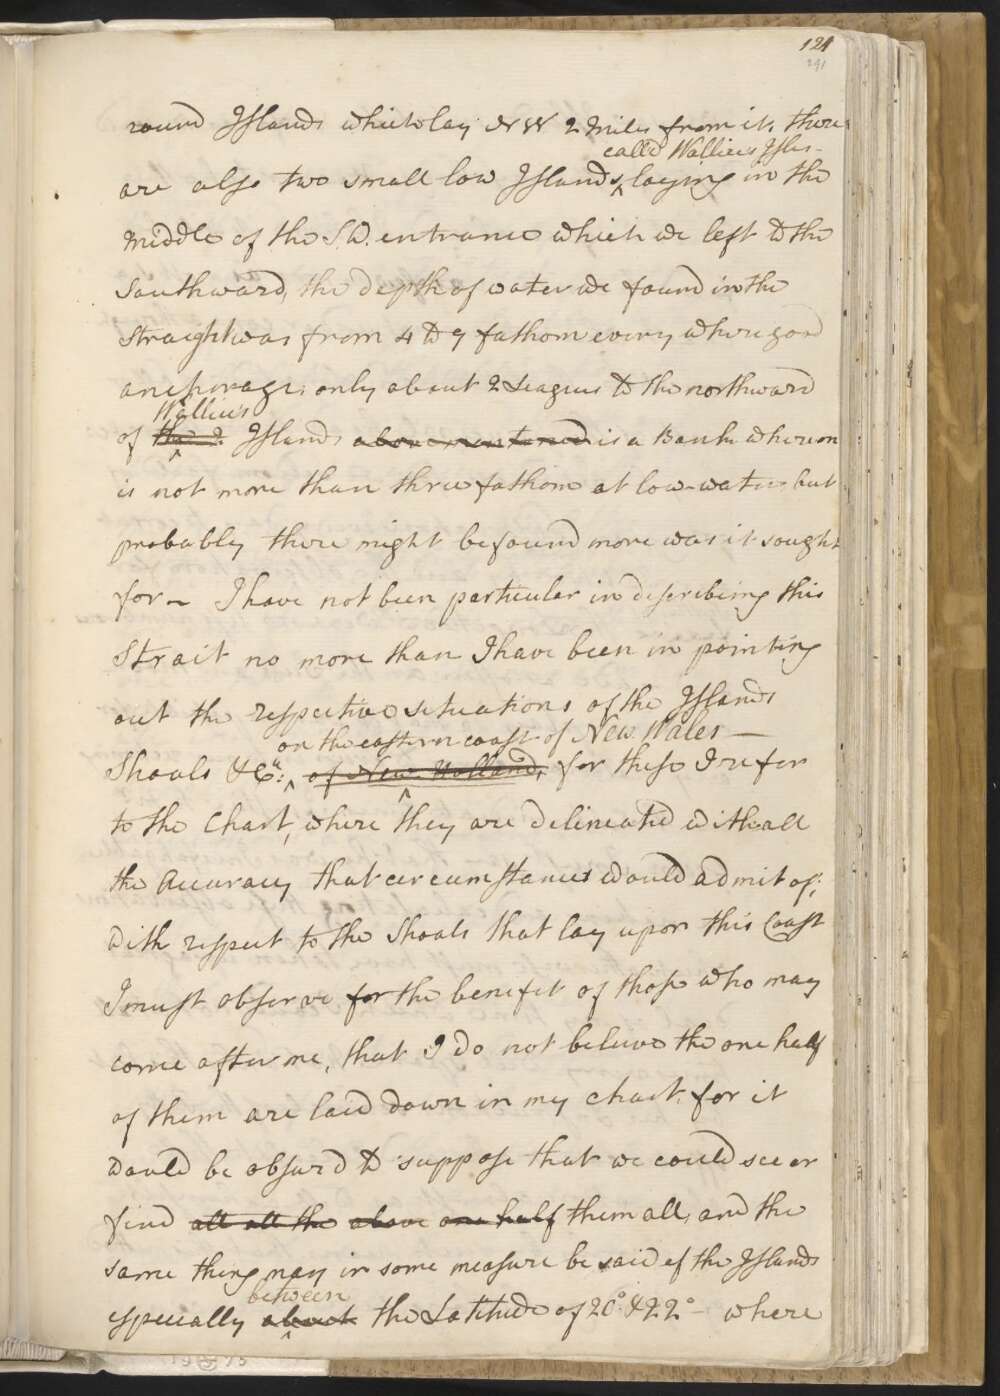 121
291
round Islands which lay NW 2 Miles from it, there
call'd Wallice's Isles -
are also two small low Islands, laying in the
Middle of the S.W. entrance which we left to the
Southward, the depth of water we found in the
Straight was from 4 to 9 fathom every where good
anchorage, only about 2 Leagues to the northward
Wallice's
of the 2 Islands above mentoned is a Bank whereon
is not more than three fathom at low-water, but
probably there might be found more was it sought
for - I have not been particular in discribeing this
Strait no more than I have been in pointing
out the respective situations of the Islands
on the eastern coast of New Wales -
Shoals &Ca: of New Holland, for these I refer
to the Chart, where they are delineated with all
the Accuracy that circumstances would admit of;
with respect to the Shoals that lay upon this Coast
I must observe for the benifit of those who may
come after me, that I do not believe the one half
of them are laid down in my Chart, for it
would be obsurd to suppose that we could see or
find all all the above one half them all, and the
same thing may in some measure be said of the Islands
between
especially about the Latitude of 20° & 22° - where